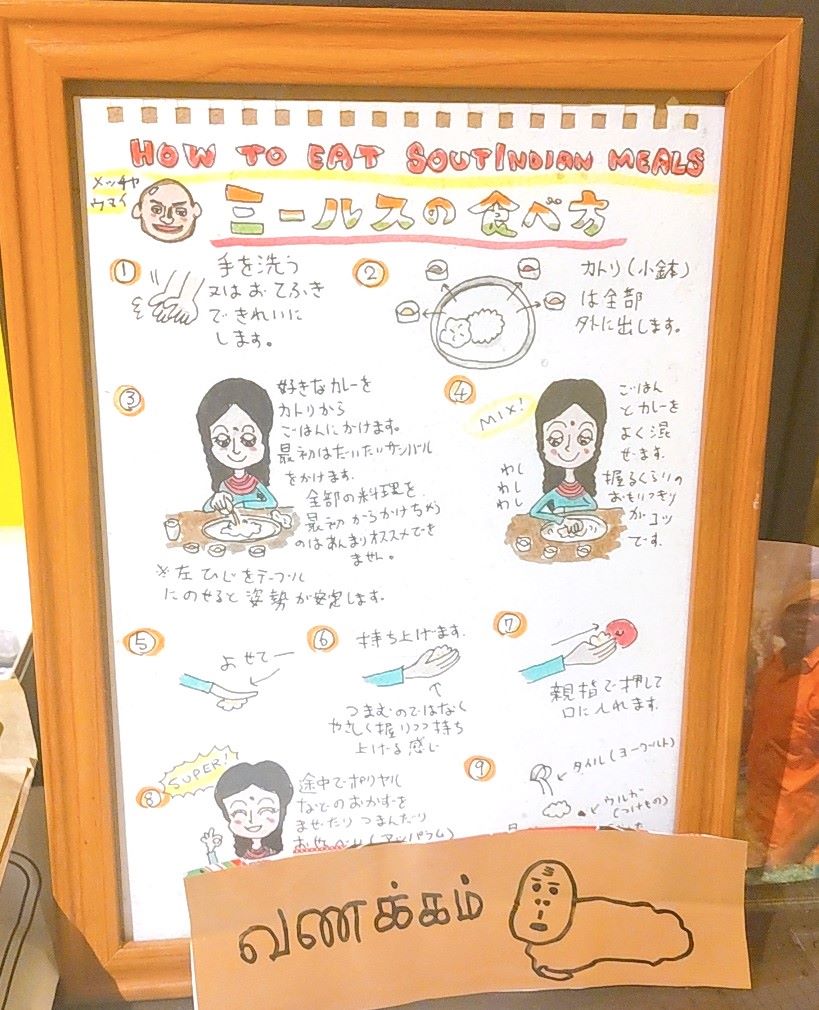 HOW TO EAT SOUTINDIAN MEALS
メッチャ
ウマイ
ミールスの食べ方
①
手を洗う
又はおてふき
できれいに
します。
②
カトリ(小鉢)
は全部
外に出します。
③
好きなカレーを
カトリから
ごはんにかけます。
最初はだいたいサンバル
をかけます。
全部の料理を
最初からかけちゃう
のはあんまりオススメできません。
※左ひじをテーブル
にのせると姿勢が安定します。
④
MIX!
ごはん
とカレーを
よく混
ぜます。
握るくらいの
おもいっきり
がコツ
です。
わし
わし
わし
⑤
よせてー
⑥
持ち上げます。
つまむのではなく
やさしく握りつつ持ち
上げる感じ
⑦
親指で押して
口にいれます。
⑧
SUPER!
途中でポリヤル
などのおかずを
まぜたりつまんだり
(アッパラム)
⑨
タイル(ヨーグルト)
ウルガ
(つけもの)
வணக்கம்